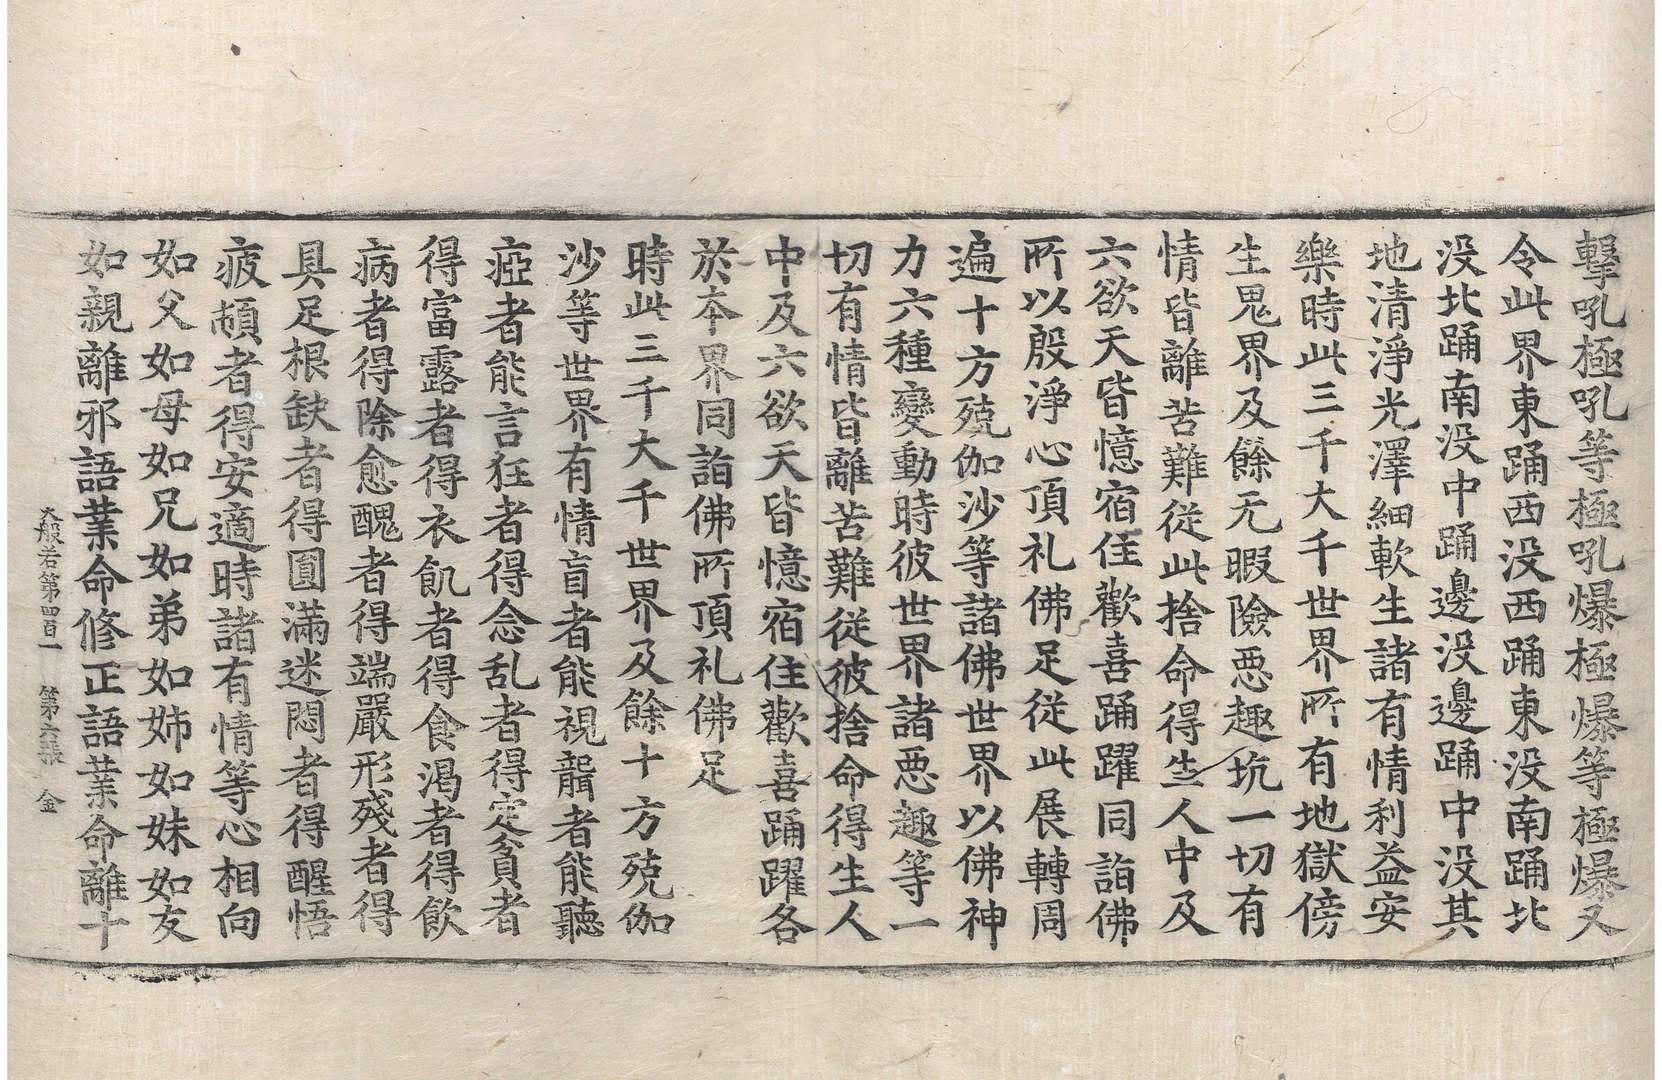 擊吼極吼等極吼爆極爆等極爆又
令此界東踊西没西踊東没南踊北
没北踊南没中踊邊没邊踊中没其
地清淨光澤細軟生諸有情利益安
樂時此三千大千世界所有地獄傍
生鬼界及餘无暇險惡趣坑一切有
情皆離苦難從此捨命得生人中及
六欲天皆憶宿住歡喜踊躍同詣佛
所以殷淨心頂礼佛足從此展轉周
遍十方殑伽沙等諸佛世界以佛神
力六種變動時彼世界諸惡趣等一
切有情皆離苦難從彼捨命得生人
中及六欲天皆憶宿住歡喜踊躍各
於本界同詣佛所頂礼佛足
時此三千大千世界及餘十方殑伽
沙等世界有情盲者能視聾者能聽
瘂者能言狂者得念乱者得定貧者
得富露者得衣飢者得食渴者得飲
病者得除愈醜者得端嚴形殘者得
具足根缺者得圓滿迷悶者得醒悟
疲頓者得安適時諸有情等心相向
如父如母如兄如弟如姉如妹如友
如親離邪語業命修正語業命離十
大般若第四百一　第六張　金